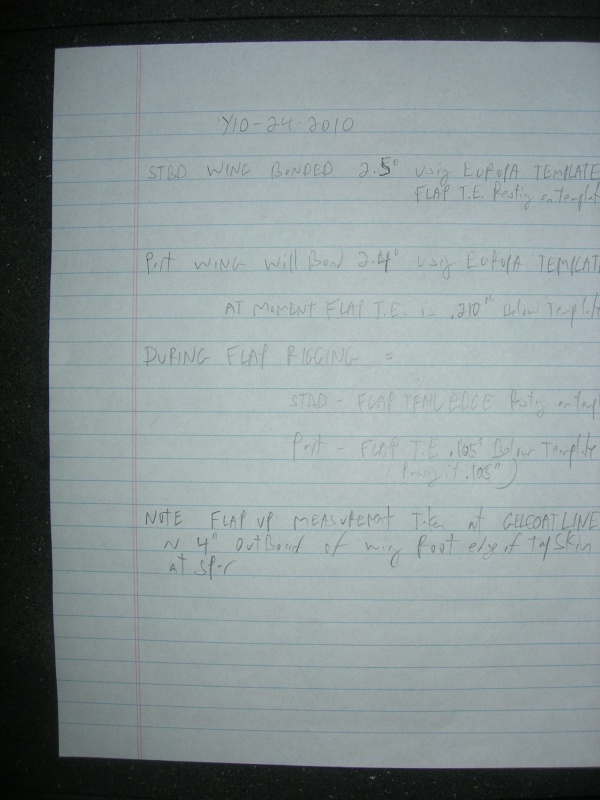 Y10-24-2010
STBD WING BONDED 2.5° using EUROPA TEMPLATE
FLAP T.E. Resting on templat
Port WING Will Bond 2.4° using EUROPA TEMPLAT
AT MOMENT FLAP T.E. is .210" Below Template
DURING FLAP RIGGING =
STBD - FLAP TRAIL EDGE Resting on templ
Port - FLAP T.E .105" Below Template
it .105")
NOTE FLAP UP MEASUREMENT Taken at GELCOAT LINE
~ 4" OutBoard of wing Root edge of Top Skin
at Spar